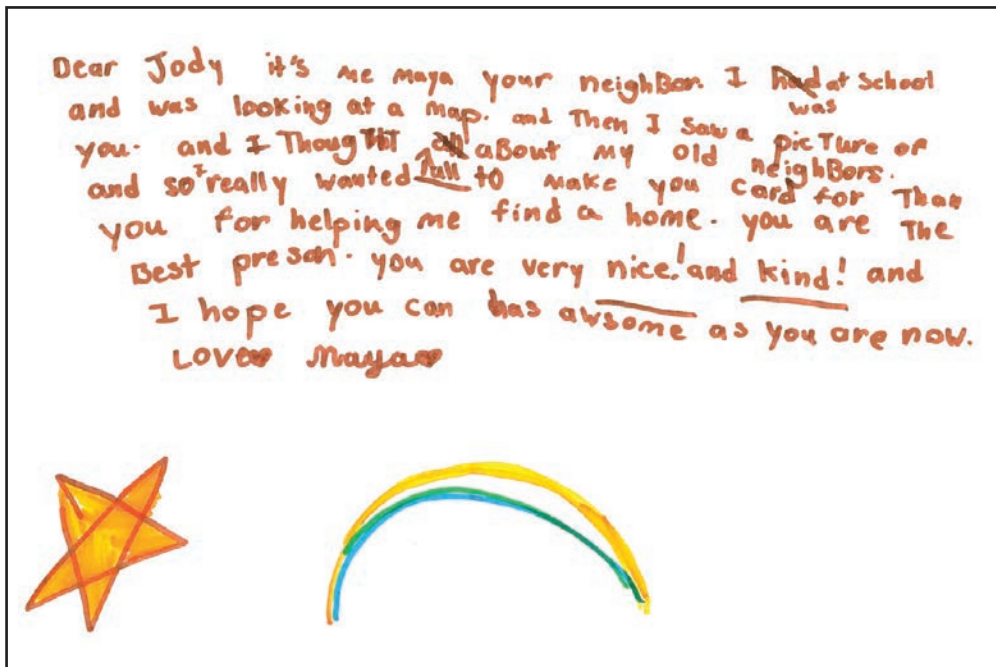 Dear Jody it's me maya your neighbor. I was at School
and was looking at a map. and Then I saw a picTure of
you. and I ThougTht about my old neighBors.
and so I really wanted to make you card for Than
you for helping me find a home. you are The
Best preson. you are very nice! and kind! and
I hope you can has awsome as you are now.
LOVe maya